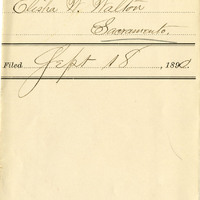 Elisha W. Walton
Sacramento.
Filed Sept 18, 1890.